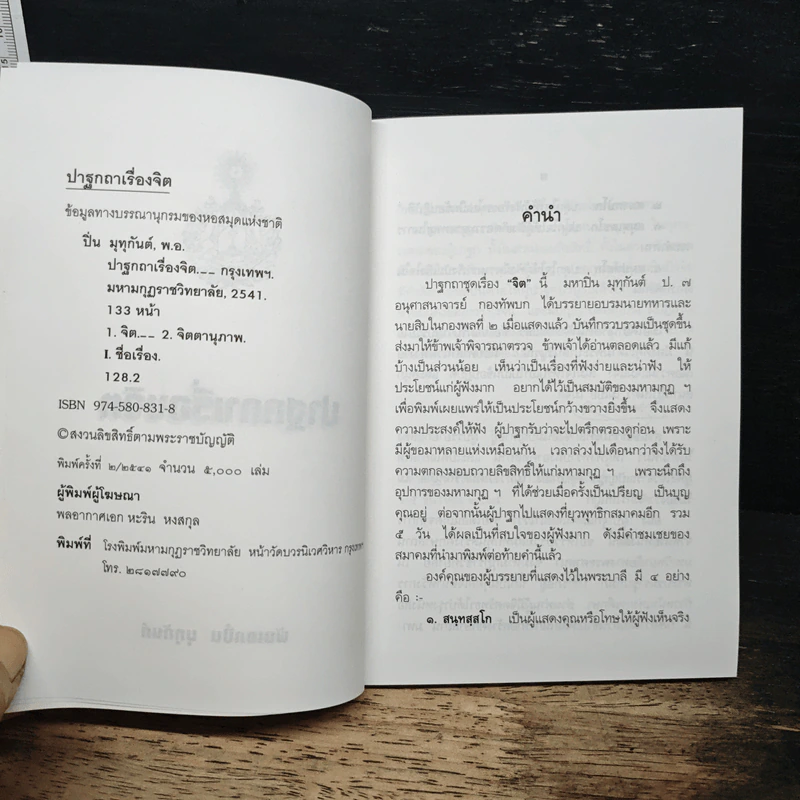 ปาฐกถาเรื่องจิต
ข้อมูลทางบรรณานุกรมของหอสมุดแห่งชาติ
ปิ่น มุทุกันต์, พ.อ.
ปาฐกถาเรื่องจิต.__ กรุงเทพฯ.
มหามกุฏราชวิทยาลัย, 2541.
133 หน้า
1. จิต.__ 2. จิตตานุภาพ.
I. ชื่อเรื่อง.
128.2
ISBN 974-580-831-8
©สงวนลิขสิทธิ์ตามพระราชบัญญัติ
พิมพ์ครั้งที่ ๒/๒๕๔๑ จำนวน ๕,๐๐๐ เล่ม
ผู้พิมพ์ผู้โฆษณา
พลอากาศเอก หะริน หงสกุล
พิมพ์ที่ โรงพิมพ์มหามกุฏราชวิทยาลัย หน้าวัดบวรนิเวศวิหาร กรุงเทพฯ
โทร. ๒๘๑๗๗๙๐
คำนำ
ปาฐกถาชุดเรื่อง "จิต" นี้ มหาปิ่น มุทุกันต์ ป. ๗
อนุศาสนาจารย์ กองทัพบก ได้บรรยายอบรมนายทหารและ
นายสิบในกองพลที่ ๒ เมื่อแสดงแล้ว บันทึกรวบรวมเป็นชุดขึ้น
ส่งมาให้ข้าพเจ้าพิจารณาตรวจ ข้าพเจ้าได้อ่านตลอดแล้ว มีแก้
บ้างเป็นส่วนน้อย เห็นว่าเป็นเรื่องที่ฟังง่ายและน่าฟัง ให้
ประโยชน์แก่ผู้ฟังมาก อยากได้ไว้เป็นสมบัติของมหามกุฏ ฯ
เพื่อพิมพ์เผยแพร่ให้เป็นประโยชน์กว้างขวางยิ่งขึ้น จึงแสดง
ความประสงค์ให้ฟัง ผู้ปาฐกรับว่าจะไปตรึกตรองดูก่อน เพราะ
มีผู้ขอมาหลายแห่งเหมือนกัน เวลาล่วงไปเดือนกว่าจึงได้รับ
ความตกลงมอบถวายลิขสิทธิ์ให้แก่มหามกุฏ ฯ เพราะนึกถึง
อุปการของมหามกุฏ ฯ ที่ได้ช่วยเมื่อครั้งเป็นเปรียญ เป็นบุญ
คุณอยู่ ต่อจากนั้นผู้ปาฐกไปแสดงที่ยุวพุทธิกสมาคมอีก รวม
๕ วัน ได้ผลเป็นที่สบใจของผู้ฟังมาก ดังมีคำชมเชยของ
สมาคมที่นำมาพิมพ์ต่อท้ายคำนี้แล้ว
องค์คุณของผู้บรรยายที่แสดงไว้ในพระบาลี มี ๔ อย่าง
คือ :-
๑. สนฺทสฺสโก เป็นผู้แสดงคุณหรือโทษให้ผู้ฟังเห็นจริง